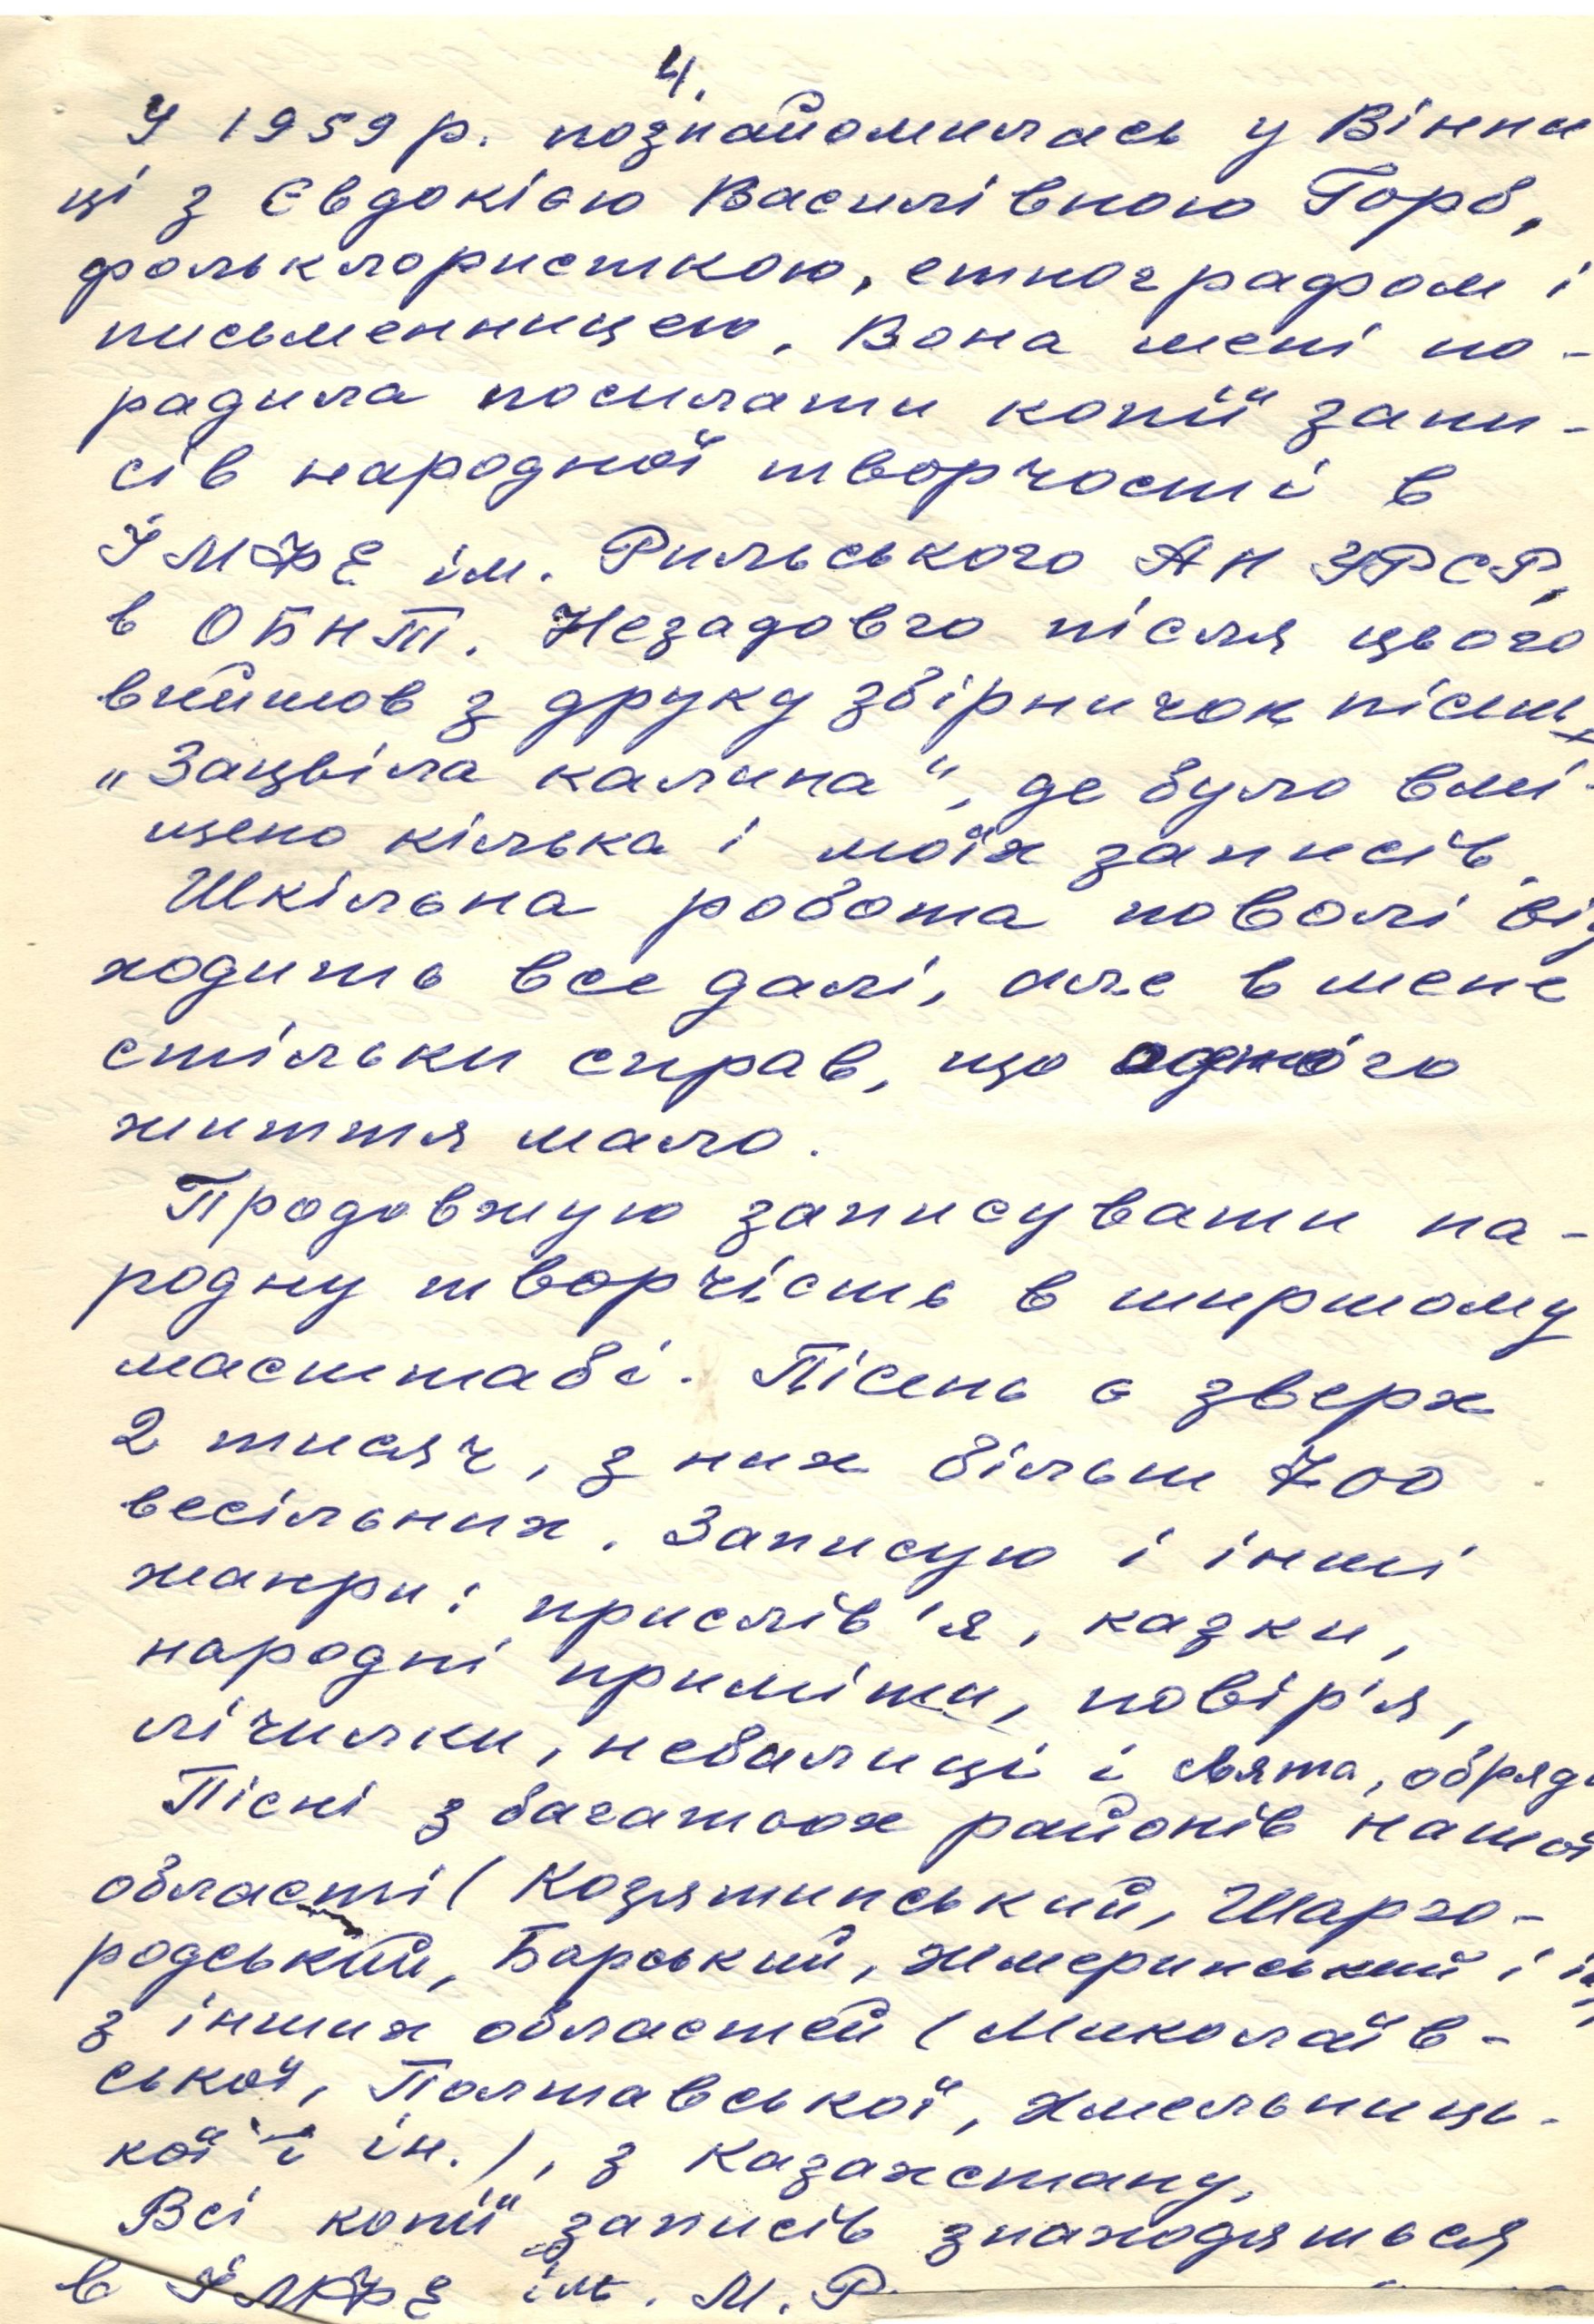 4.
У 1959 р. познайомилась у Вінни
ці з Євдокією Василівною Горб,
фольклористкою, етнографом і
письменницею. Вона мені по-
радила посилати копії запи-
сів народної творчості в
ІМФЕ ім. Рильського АН УРСР,
в ОБНТ. Незадовго після цього
вийшов з друку збірничок пісень
„Зацвіла калина", де було вмі-
щено кілька і моїх записів.
Шкільна робота поволі від
ходить все далі, але в мене
стільки справ, що одного
життя мало.
Продовжую записувати на-
родну творчість в ширшому
масштабі. Пісень є зверх
2 тисяч, з них більш 700
весільних. Записую і інші
жанри: прислів'я, казки,
народні приміти, повір'я,
лічилки, небилиці і свята, обряди
Пісні з багатьох районів нашої
області (Козятинський, Шарго-
родський, Барський, Жмеринський і ін
з інших областей (Миколаїв-
ської, Полтавської, Хмельниць-
кої і ін.), з Казахстану.
Всі копії записів знаходяться
в ІМФЕ ім. М. Р